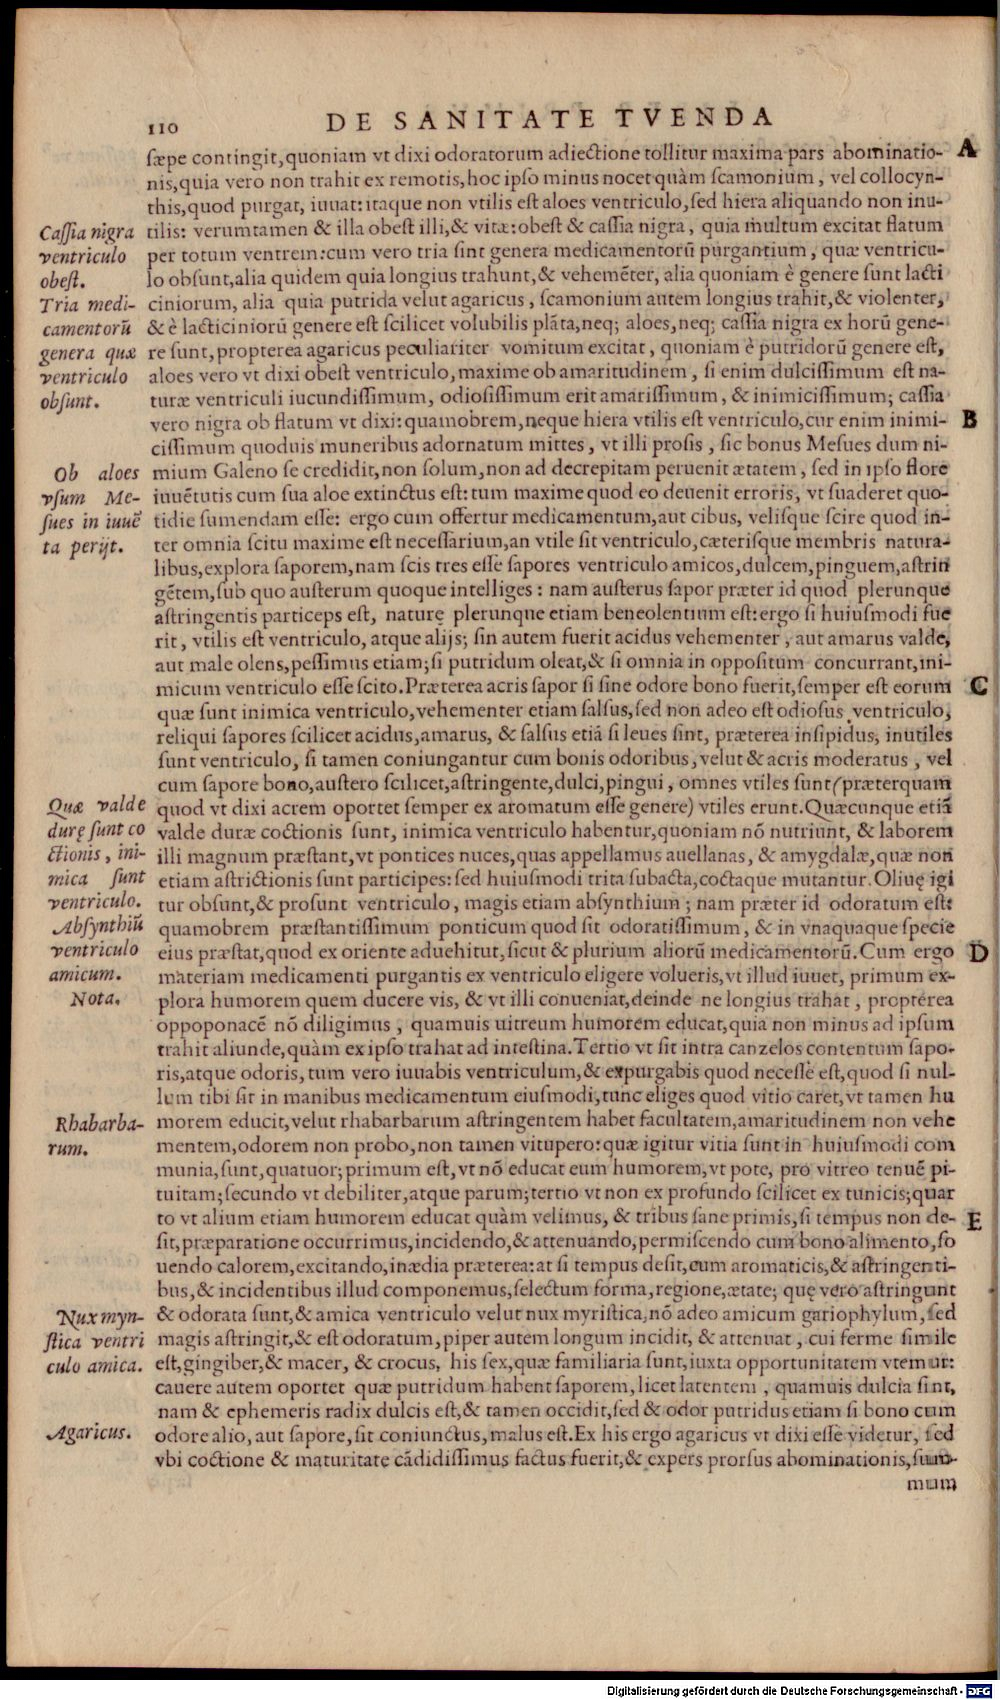 110 DE SANITATE TVENDA
sæpe contingit, quoniam vt dixi odoratorum adiectione tollitur maxima pars abominatio- A
nis, quia vero non trahit ex remotis, hoc ipso minus nocet quàm scamonium, vel collocyn-
this, quod purgat, iuuat: itaque non vtilis est aloes ventriculo, sed hiera aliquando non inu-
Cassia nigra
ventriculo
obest.
tilis: verumtamen & illa obest illi, & vitæ: obest & cassia nigra, quia multum excitat flatum
per totum ventrem: cum vero tria sint genera medicamentorũ purgantium, quæ ventricu-
lo obsunt, alia quidem quia longius trahunt, & vehemẽter, alia quoniam è genere sunt lacti
Tria medi-
camentorũ
genera quæ
ventriculo
obsunt.
ciniorum, alia quia putrida velut agaricus, scamonium autem longius trahit, & violenter,
& è lacticiniorũ genere est scilicet volubilis plãta, neq; aloes, neq; cassia nigra ex horũ gene-
re sunt, propterea agaricus peculiariter vomitum excitat, quoniam è putridorũ genere est,
aloes vero vt dixi obest ventriculo, maxime ob amaritudinem, si enim dulcissimum est na-
turæ ventriculi iucundissimum, odiosissimum erit amarissimum, & inimicissimum; cassia
vero nigra ob flatum vt dixi: quamobrem, neque hiera vtilis est ventriculo, cur enim inimi- B
cissimum quoduis muneribus adornatum mittes, vt illi prosis, sic bonus Mesues dum ni-
Ob aloes
vsum Me-
sues in iuuẽ
ta perijt.
mium Galeno se credidit, non solum, non ad decrepitam peruenit ætatem, sed in ipso flore
iuuẽtutis cum sua aloe extinctus est: tum maxime quod eo deuenit erroris, vt suaderet quo-
tidie sumendam esse: ergo cum offertur medicamentum, aut cibus, velisque scire quod in-
ter omnia scitu maxime est necessarium, an vtile sit ventriculo, cæterisque membris natura-
libus, explora saporem, nam scis tres esse sapores ventriculo amicos, dulcem, pinguem, astrin
gẽtem, sub quo austerum quoque intelliges: nam austerus sapor præter id quod plerunque
astringentis particeps est, naturę plerunque etiam beneolentium est: ergo si huiusmodi fue
rit, vtilis est ventriculo, atque alijs; sin autem fuerit acidus vehementer, aut amarus valde,
aut male olens, pessimus etiam; si putridum oleat, & si omnia in oppositum concurrant, ini-
micum ventriculo esse scito. Præterea acris sapor si sine odore bono fuerit, semper est eorum C
quæ sunt inimica ventriculo, vehementer etiam salsus, sed non adeo est odiosus ventriculo,
reliqui sapores scilicet acidus, amarus, & salsus etiã si leues sint, præterea insipidus, inutiles
sunt ventriculo, si tamen coniungantur cum bonis odoribus, velut & acris moderatus, vel
cum sapore bono, austero scilicet, astringente, dulci, pingui, omnes vtiles sunt (præterquam
Quæ valde
durę sunt co
ctionis, ini-
mica sunt
ventriculo.
quod vt dixi acrem oportet semper ex aromatum esse genere) vtiles erunt. Quæcunque etiã
valde duræ coctionis sunt, inimica ventriculo habentur, quoniam nõ nutriunt, & laborem
illi magnum præstant, vt pontices nuces, quas appellamus auellanas, & amygdalæ, quæ non
etiam astrictionis sunt participes: sed huiusmodi trita subacta, coctaque mutantur. Oliuę igi
tur obsunt, & prosunt ventriculo, magis etiam absynthium; nam præter id odoratum est:
Absynthiũ
ventriculo
amicum.
Nota.
quamobrem præstantissimum ponticum quod sit odoratissimum, & in vnaquaque specie
eius præstat, quod ex oriente aduehitur, sicut & plurium aliorũ medicamentorũ. Cum ergo D
materiam medicamenti purgantis ex ventriculo eligere volueris, vt illud iuuet, primum ex-
plora humorem quem ducere vis, & vt illi conueniat, deinde ne longius trahat, propterea
oppoponacẽ nõ diligimus, quamuis uitreum humorem educat, quia non minus ad ipsum
trahit aliunde, quàm ex ipso trahat ad intestina. Tertio vt sit intra canzelos contentum sapo-
ris, atque odoris, tum vero iuuabis ventriculum, & expurgabis quod necesse est, quod si nul-
lum tibi sit in manibus medicamentum eiusmodi, tunc eliges quod vitio caret, vt tamen hu
Rhabarba-
rum.
morem educit, velut rhabarbarum astringentem habet facultatem, amaritudinem non vehe
mentem, odorem non probo, non tamen vitupero: quæ igitur vitia sunt in huiusmodi com
munia, sunt, quatuor; primum est, vt nõ educat eum humorem, vt pote, pro vitreo tenuẽ pi-
tuitam; secundo vt debiliter, atque parum; tertio vt non ex profundo scilicet ex tunicis; quar
to vt alium etiam humorem educat quàm velimus, & tribus sane primis, si tempus non de- E
sit, præparatione occurrimus, incidendo, & attenuando, permiscendo cum bono alimento, fo
uendo calorem, excitando, inædia præterea: at si tempus desit, cum aromaticis, & astringenti-
bus, & incidentibus illud componemus, selectum forma, regione, ætate; quę vero astringunt
Nux myri-
stica ventri
culo amica.
& odorata sunt, & amica ventriculo velut nux myristica, nõ adeo amicum gariophylum, sed
magis astringit, & est odoratum, piper autem longum incidit, & attenuat, cui ferme simile
est, gingiber, & macer, & crocus, his sex, quæ familiaria sunt, iuxta opportunitatem vtemur:
cauere autem oportet quæ putridum habent saporem, licet latentem, quamuis dulcia sint,
nam & ephemeris radix dulcis est, & tamen occidit, sed & odor putridus etiam si bono cum
Agaricus.
odore alio, aut sapore, sit coniunctus, malus est. Ex his ergo agaricus vt dixi esse videtur, sed
vbi coctione & maturitate cãdidissimus factus fuerit, & expers prorsus abominationis, sum-
mum
Digitalisierung gefördert durch die Deutsche Forschungsgemeinschaft - DFG